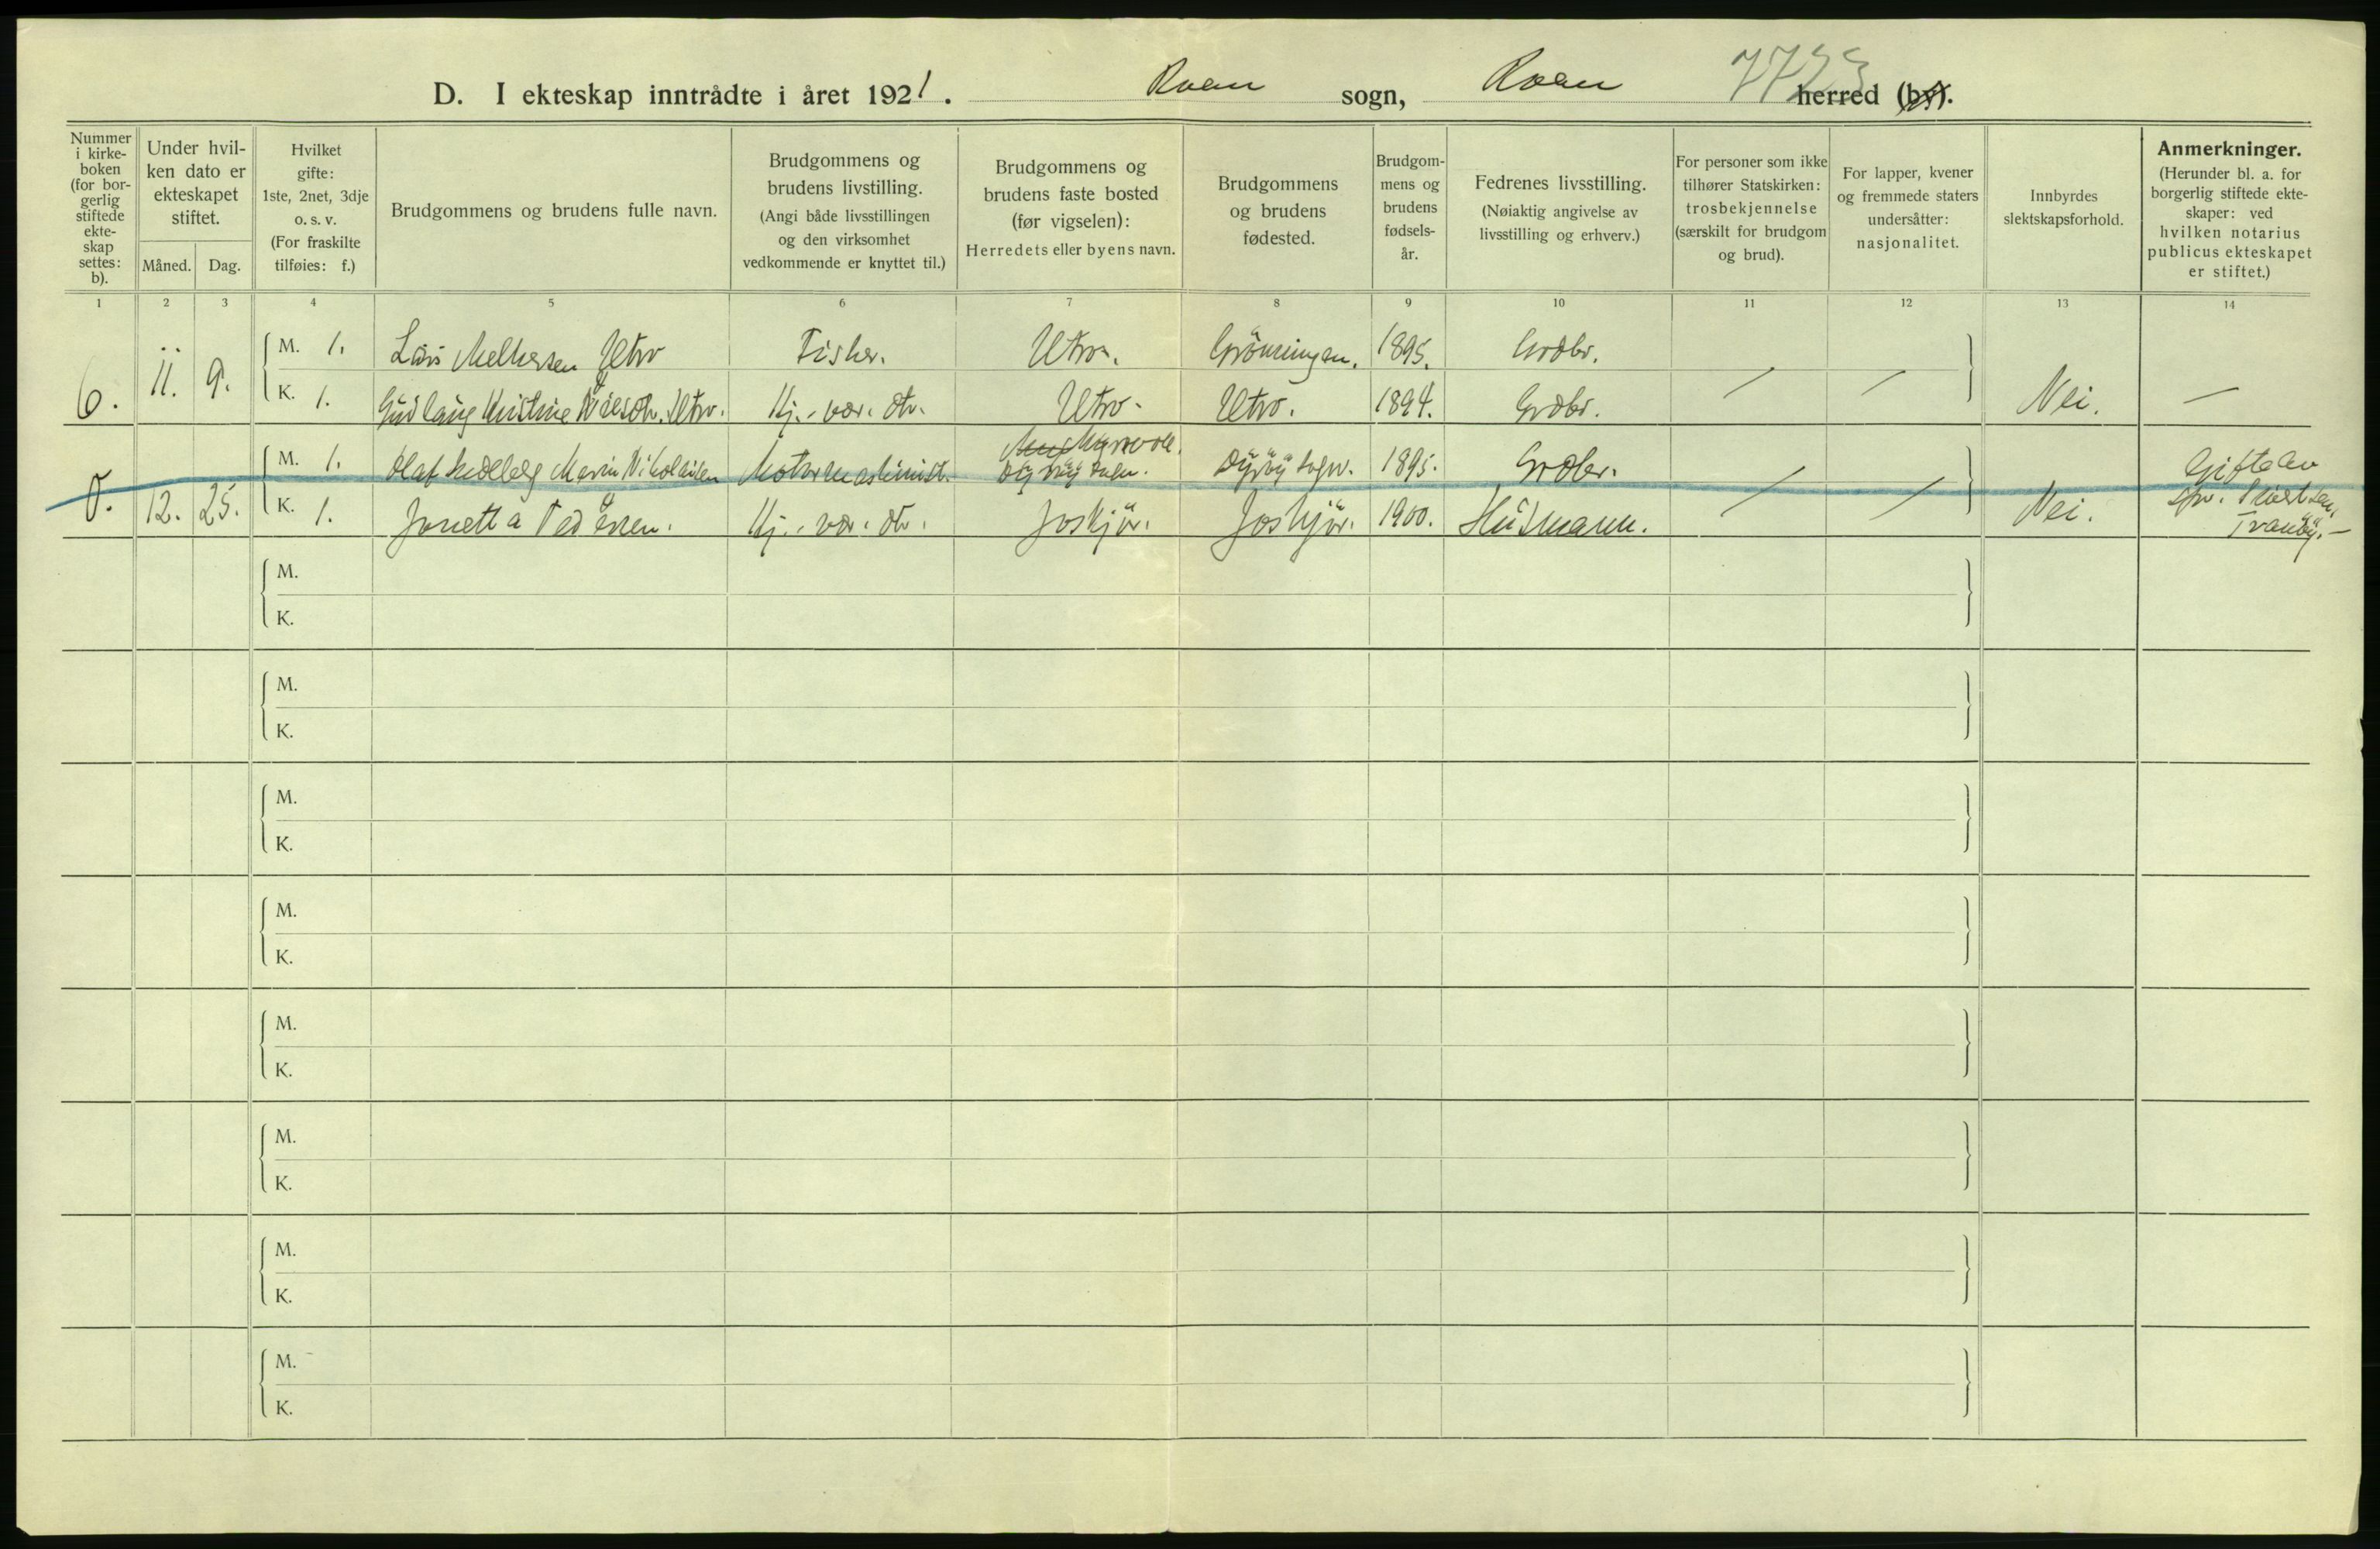 D. I ekteskap inntrådte i året 1921. Roan sogn, Roan 7723 herred (by).
Nummer i kirke-boken (for bor-gerlig stiftede ekte-skap settes: b).
Under hvil-ken dato er ekteskapet stiftet.
Måned. Dag.
Hvilket gifte: 1ste, 2net, 3dje o. s. v. (For fraskilte tilføies: f.)
Brudgommens og brudens fulle navn.
Brudgommens og brudens livstilling. (Angi både livsstillingen og den virksomhet vedkommende er knyttet til.)
Brudgommens og brudens faste bosted (før vigselen): Herredets eller byens navn.
Brudgommens og brudens fødested.
Brudgom-mens og brudens fødsels-år.
Fedrenes livsstilling. (Nøiaktig angivelse av livsstilling og erhverv.)
For personer som ikke tilhører Statskirken: trosbekjennelse (særskilt for brudgom og brud).
For lapper, kvener og fremmede staters undersåtter: nasjonalitet.
Innbyrdes slektskapsforhold.
Anmerkninger. (Herunder bl. a. for borgerlig stiftede ekte-skaper: ved hvilken notarius publicus ekteskapet er stiftet.)
1 2 3 4 5 6 7 8 9 10 11 12 13 14
6. 11. 9. M. 1. Lars Melkersen Utro Fisker. Utro. Grönningen. 1895. Grdbr.
K. 1. Gudlaug Kristine Utro. Hj.-vær. dtr. Utro. Utro. 1894. Grdbr. — — Nei. —
12. 25. M. 1. Olaf Hedberg Marin Nikolaisen Motormaskinist. Dyröy sogn. Dyröy sogn. 1895. Grdbr. Gifte av
K. 1. Jonetta Pedersen. Hj.-vær. dtr. Joskjör. Joskjör. 1900. Husmann. — — Nei. spr.
Tranöy.—
M.
K.
M.
K.
M.
K.
M.
K.
M.
K.
M.
K.
M.
K.
M.
K.